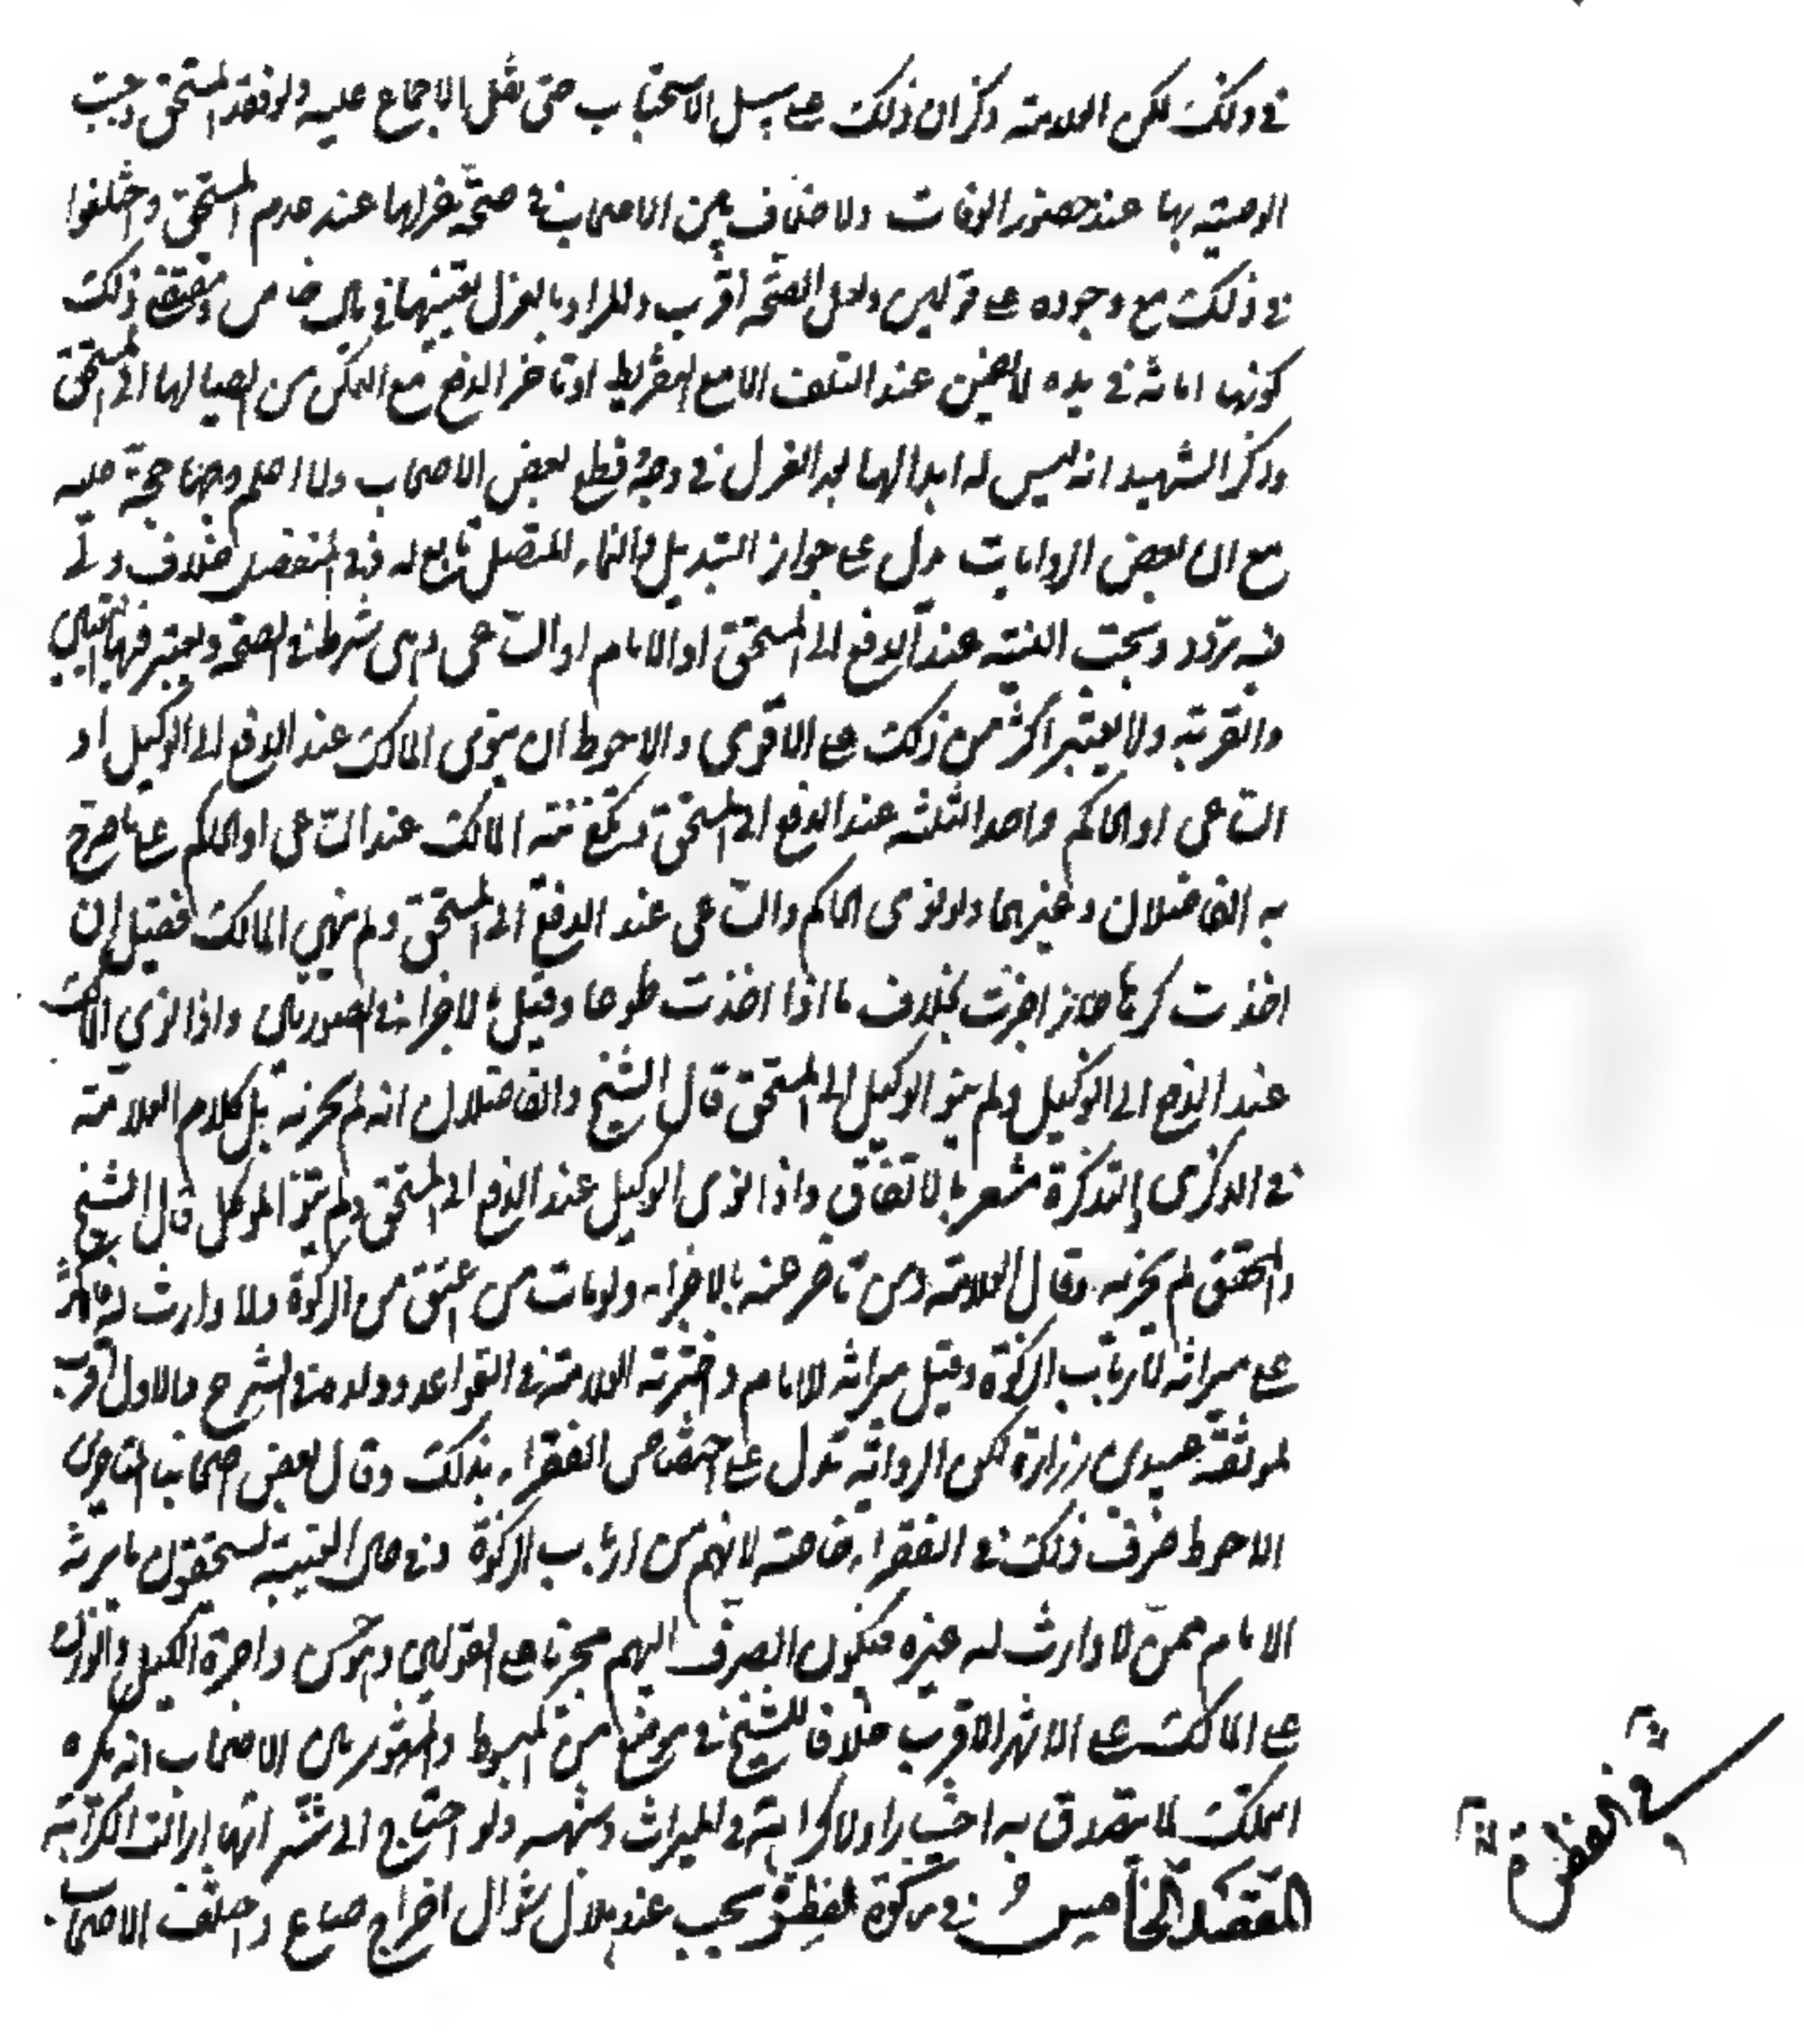 في ذلك لكن العلامة ذكر ان ذلك على سبيل الاستحباب حتى نقل الاجماع عليه ولو فقد المستحق وجبت
الوصية بها عند حضور الوفات ولا خلاف بين الاصحاب في صحة عزلها عند عدم المستحق واختلفوا
في ذلك مع وجوده على قولين ولعل الصحة اقرب والمراد بالعزل تعيينها في مال خاص ومقتضى ذلك
كونها امانة في يده لا يضمن عند التلف الا مع التفريط او تاخر الدفع مع التمكن من ايصالها الى المستحق
وذكر الشهيد انه ليس له ابدالها بعد العزل في وجه قطع بعض الاصحاب ولا اعلم وضا حجة عليه
مع ان بعض الروايات يدل على جواز التبديل والنماء المتصل تابع له وفي المنفصل خلاف ولي
فيه تردد ويجب النية عند الدفع الى المستحق او الامام او الساعى وهى شرط في الصحة ويعتبر فيها التعيين
والقربة ولا يعتبر اكثر من ذلك على الاقوى والاحوط ان ينوى المالك عند الدفع الى الوكيل او
الساعى او الحاكم واحد الثلثة عند الدفع الى المستحق وتكفى نية المالك عند الساعى او الحاكم على ما صرح
به الفاضلان وغيرهما ولو نوى الحاكم والساعى عند الدفع الى المستحق ولم ينو المالك فقيل ان
اخذت كرها جاز اجزئت بخلاف ما اذا اخذت طوعا وقيل بالاجزاء في الصورتين واذا نوى المالك
عند الدفع الى الوكيل ولم ينو الوكيل الى المستحق قال الشيخ والفاضلان انه لم يجزئه بل كلام العلامة
في التذكرة مشعر بالاتفاق واذا نوى الوكيل عند الدفع الى المستحق ولم ينو الموكل قال الشيخ
والمحقق لم يجزئه وقال العلامة ومن تاخر عنه بالاجزاء ولو مات من اعتق من الزكوة ولا وارث له فالاكثر
على ميراثه لارباب الزكوة وقيل ميراثه للامام واختاره العلامة في القواعد وولده في الشرح والاول اقرب
لموثقة عبيد بن زرارة لكن الرواية تدل على اختصاص الفقراء بذلك وقال بعض اصحابنا المتاخرين
الاحوط صرف ذلك في الفقراء خاصة لانهم من ارباب الزكوة وفي حال الغيبة يستحقون ما يرثه
الامام ممن لا وارث له غيره فيكون الصرف اليهم مجزيا على القولين وهو حسن واجرة الكيل والوزن
على المالك على الاشهر الاقرب خلافا للشيخ في موضع من المبسوط والمشهور بين الاصحاب انه يكره
تملك ما يتصدق به اختيارا ولا كراهة في الميراث وشبهه ولو احتاج الى شرائها زالت الكراهة
المقصد الخامس في زكوة الفطرة يجب عند هلال شوال اخراج صاع واختلف الاصحاب
في الفطرة